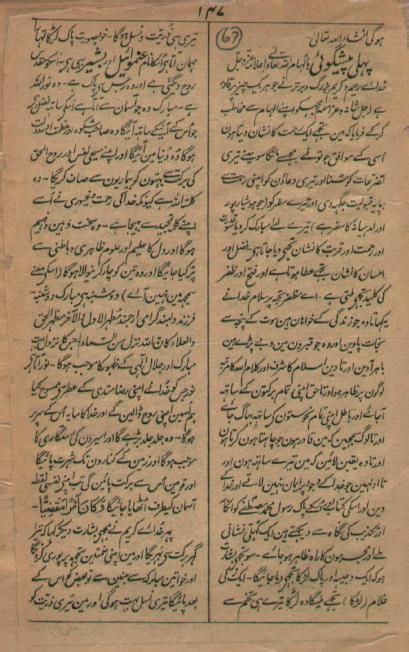 ۱۴۷
(67)
ہوگی انشاء اللہ تعالیٰ۔
پہلی پیشگوئی بالہام اللہ تعالیٰ و اعلامہ عزوجل
خدائے رحیم و کریم بزرگ و برتر نے جو ہریک چیز پر قادر
ہے (جل شانہ و عز اسمہ) مجھکو اپنے الہام سے مخاطب
کر کے فرمایا کہ مین تجھے ایک رحمت کا نشان دیتا ہون
اسی کے موافق جو تونے مجھسے مانگا سو مینے تیری
تضرعات کو سنا اور تیری دعاؤن کو اپنی رحمت سے
بپایہ قبولیت جگہ دی اور تیرے سفر کو (جو ہوشیارپور
اور لدہیانہ کا سفر ہے) تیرے لئے مبارک کر دیا سو قدرت
اور رحمت اور قربت کا نشان تجھے دیا جاتا ہے۔ فضل اور
احسان کا نشان تجھے عطا ہوتا ہے اور فتح اور ظفر
کی کلید تجھے ملتی ہے۔ اے مظفر تجھ پر سلام خدا نے
یہ کہا تا وہ جو زندگی کے خواہان ہین موت کے پنجہ سے
نجات پاوین اور وہ جو قبرون مین دبے پڑے ہین
باہر آوین اور تا دین اسلام کا شرف اور کلام اللہ کا مرتبہ
لوگون پر ظاہر ہو اور تا حق اپنی تمام برکتون کے ساتھ
آجائے اور باطل اپنی تمام نحوستون کے ساتھ بھاگ جائے
اور تا لوگ سمجھین کہ مین قادر ہون جو چاہتا ہون کرتا ہون
اور تا وہ یقین لائین کہ مین تیرے ساتھ ہون اور
تا اونہین جو خدا کے وجود پر ایمان نہین لاتے اور خدا کے
دین اور اس کی کتاب اور اسکے پاک رسول محمد مصطفےٰ کو انکار
اور تکذیب کی نگاہ سے دیکھتے ہین ایک کھلی نشانی
ملے اور مجرمون کی راہ ظاہر ہو جائے۔ سو تجھے بشارت
ہو کہ ایک وجیہ اور پاک لڑکا تجھے دیا جائیگا۔ ایک زکی
غلام (لڑکا) تجھے ملیگا وہ لڑکا تیرے ہی تخم سے
تیری ہی ذریت و نسل ہوگا۔ خوبصورت پاک لڑکا تمہارا
مہمان آتا ہے اسکا نام عنموائیل اور بشیر بھی ہے۔ اسکو مقدس
روح دیگئی ہے اور وہ رجس سے پاک ہے۔ وہ نور اللہ
ہے۔ مبارک وہ جو آسمان سے آتا ہے اسکے ساتھ فضل ہے
جو اس کے آنے کے ساتھ آئیگا وہ صاحب شکوہ اور عظمت اور دولت
ہوگا وہ دنیا مین آئیگا اور اپنے مسیحی نفس اور روح الحق
کی برکت سے بہتون کو بیماریون سے صاف کریگا۔ وہ
کلمۃ اللہ ہے کیونکہ خدا کی رحمت و غیوری نے اسے
اپنے کلمہ تمجید سے بھیجا ہے۔ وہ سخت ذہین و فہیم
ہوگا اور دل کا حلیم اور علوم ظاہری و باطنی سے
پر کیا جائیگا اور وہ تین کو چار کرنیوالا ہوگا (اسکے معنے
سمجھ مین نہین آئے) دوشنبہ ہے مبارک دوشنبہ
فرزند دلبند گرامی ارجمند مظہر الاول والآخر مظہر الحق
والعلاء کان اللہ نزل من السماء جسکا نزول بہت
مبارک اور جلال الٰہی کے ظہور کا موجب ہوگا۔ نور آتا ہے
نور جس کو خدا نے اپنی رضامندی کے عطر سے ممسوح کیا
ہم اسمین اپنی روح ڈالین گے اور خدا کا سایہ اسکے سر پر
ہوگا۔ وہ جلد جلد بڑھے گا اور اسیرون کی رستگاری کا
موجب ہوگا اور زمین کے کنارون تک شہرت پائیگا
اور قومین اس سے برکت پائین گی تب اپنے نفسی نقطہ
آسمان کیطرف اٹھایا جائیگا وَکَانَ اَمْرًا مَّقْضِیًّا۔
پھر خدائے کریم نے مجھے بشارت دیکر کہا کہ تیرا
گھر برکت سے بھریگا اور مین اپنی نعمتین تجھ پر پوری کرونگا
اور خواتین مبارکہ سے جنمین سے تو بعض کو اس کے
بعد پائیگا تیری نسل بہت ہوگی اور مین تیری ذریت کو